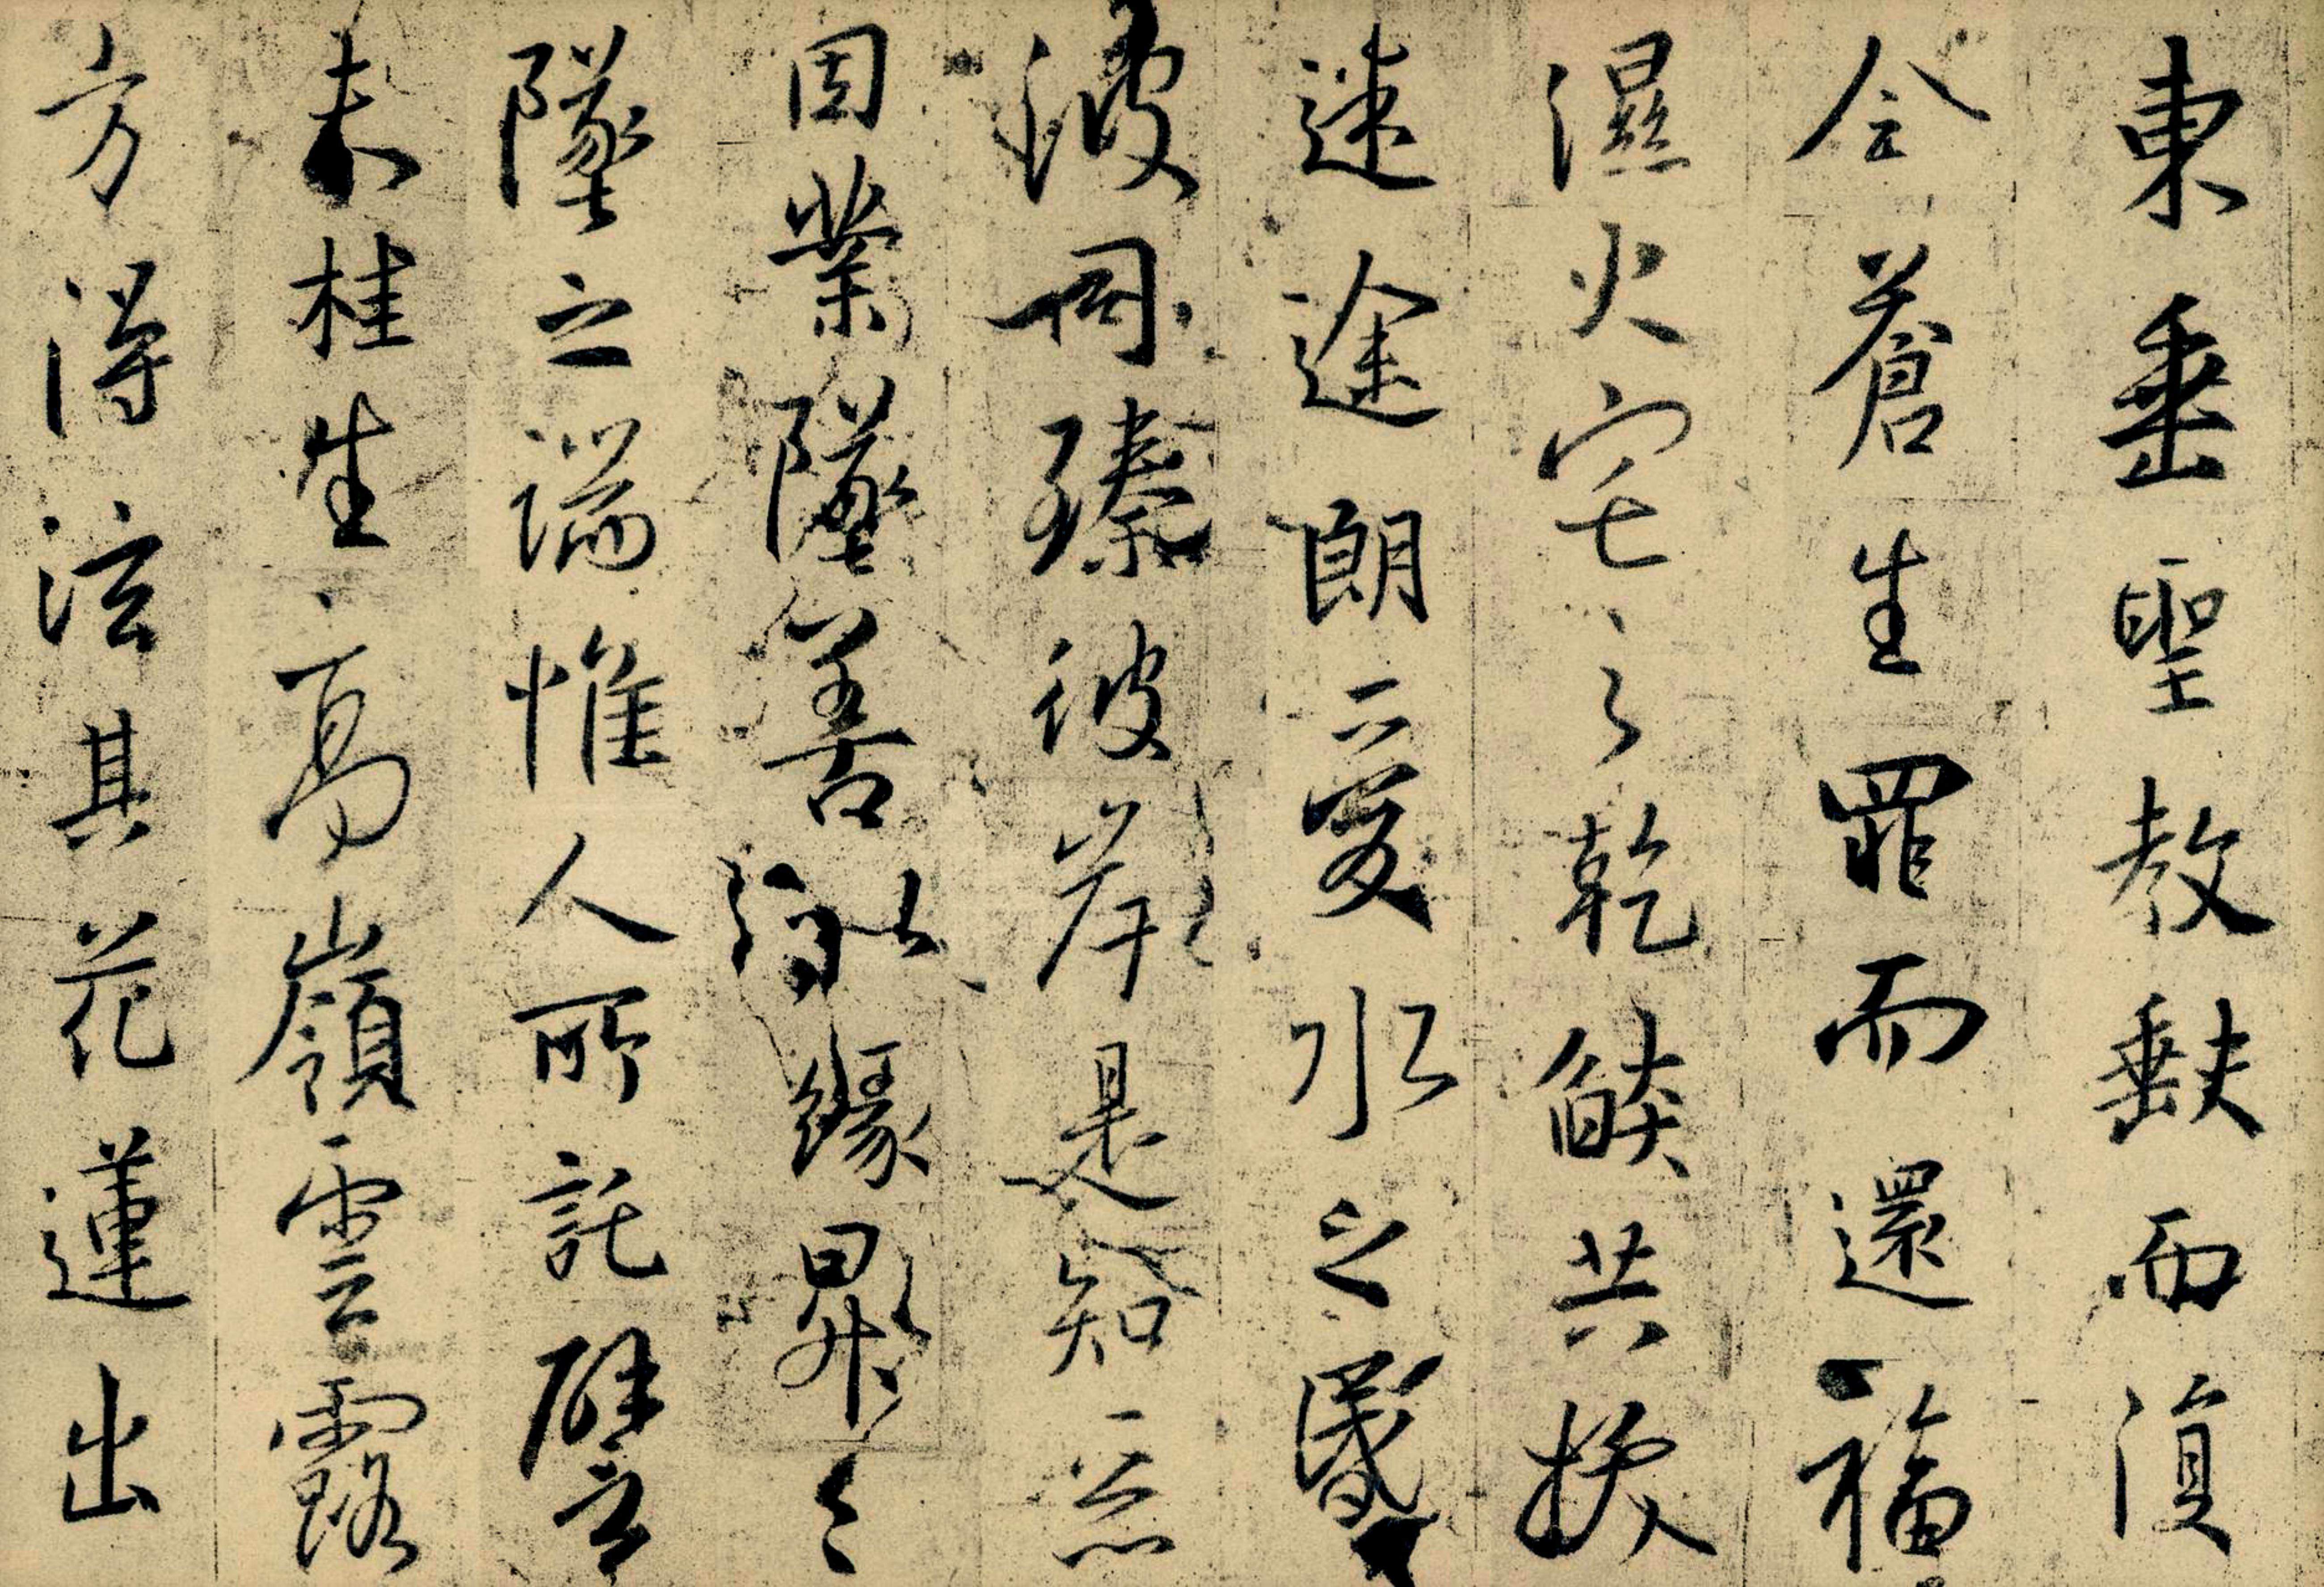 東垂聖教缺而復
全蒼生罪而還福
濕火宅之乾焰共拔
迷途朗愛水之昏
波同臻彼岸是知惡
因業墜善以緣昇々
墜之端惟人所託譬
夫桂生高嶺雲露
方得泫其花蓮出